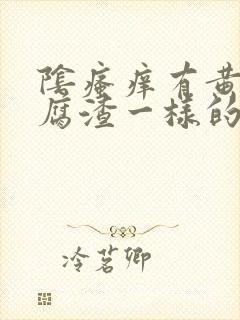 陰瘙痒有黄
腐渣一樣的
冷茗卿